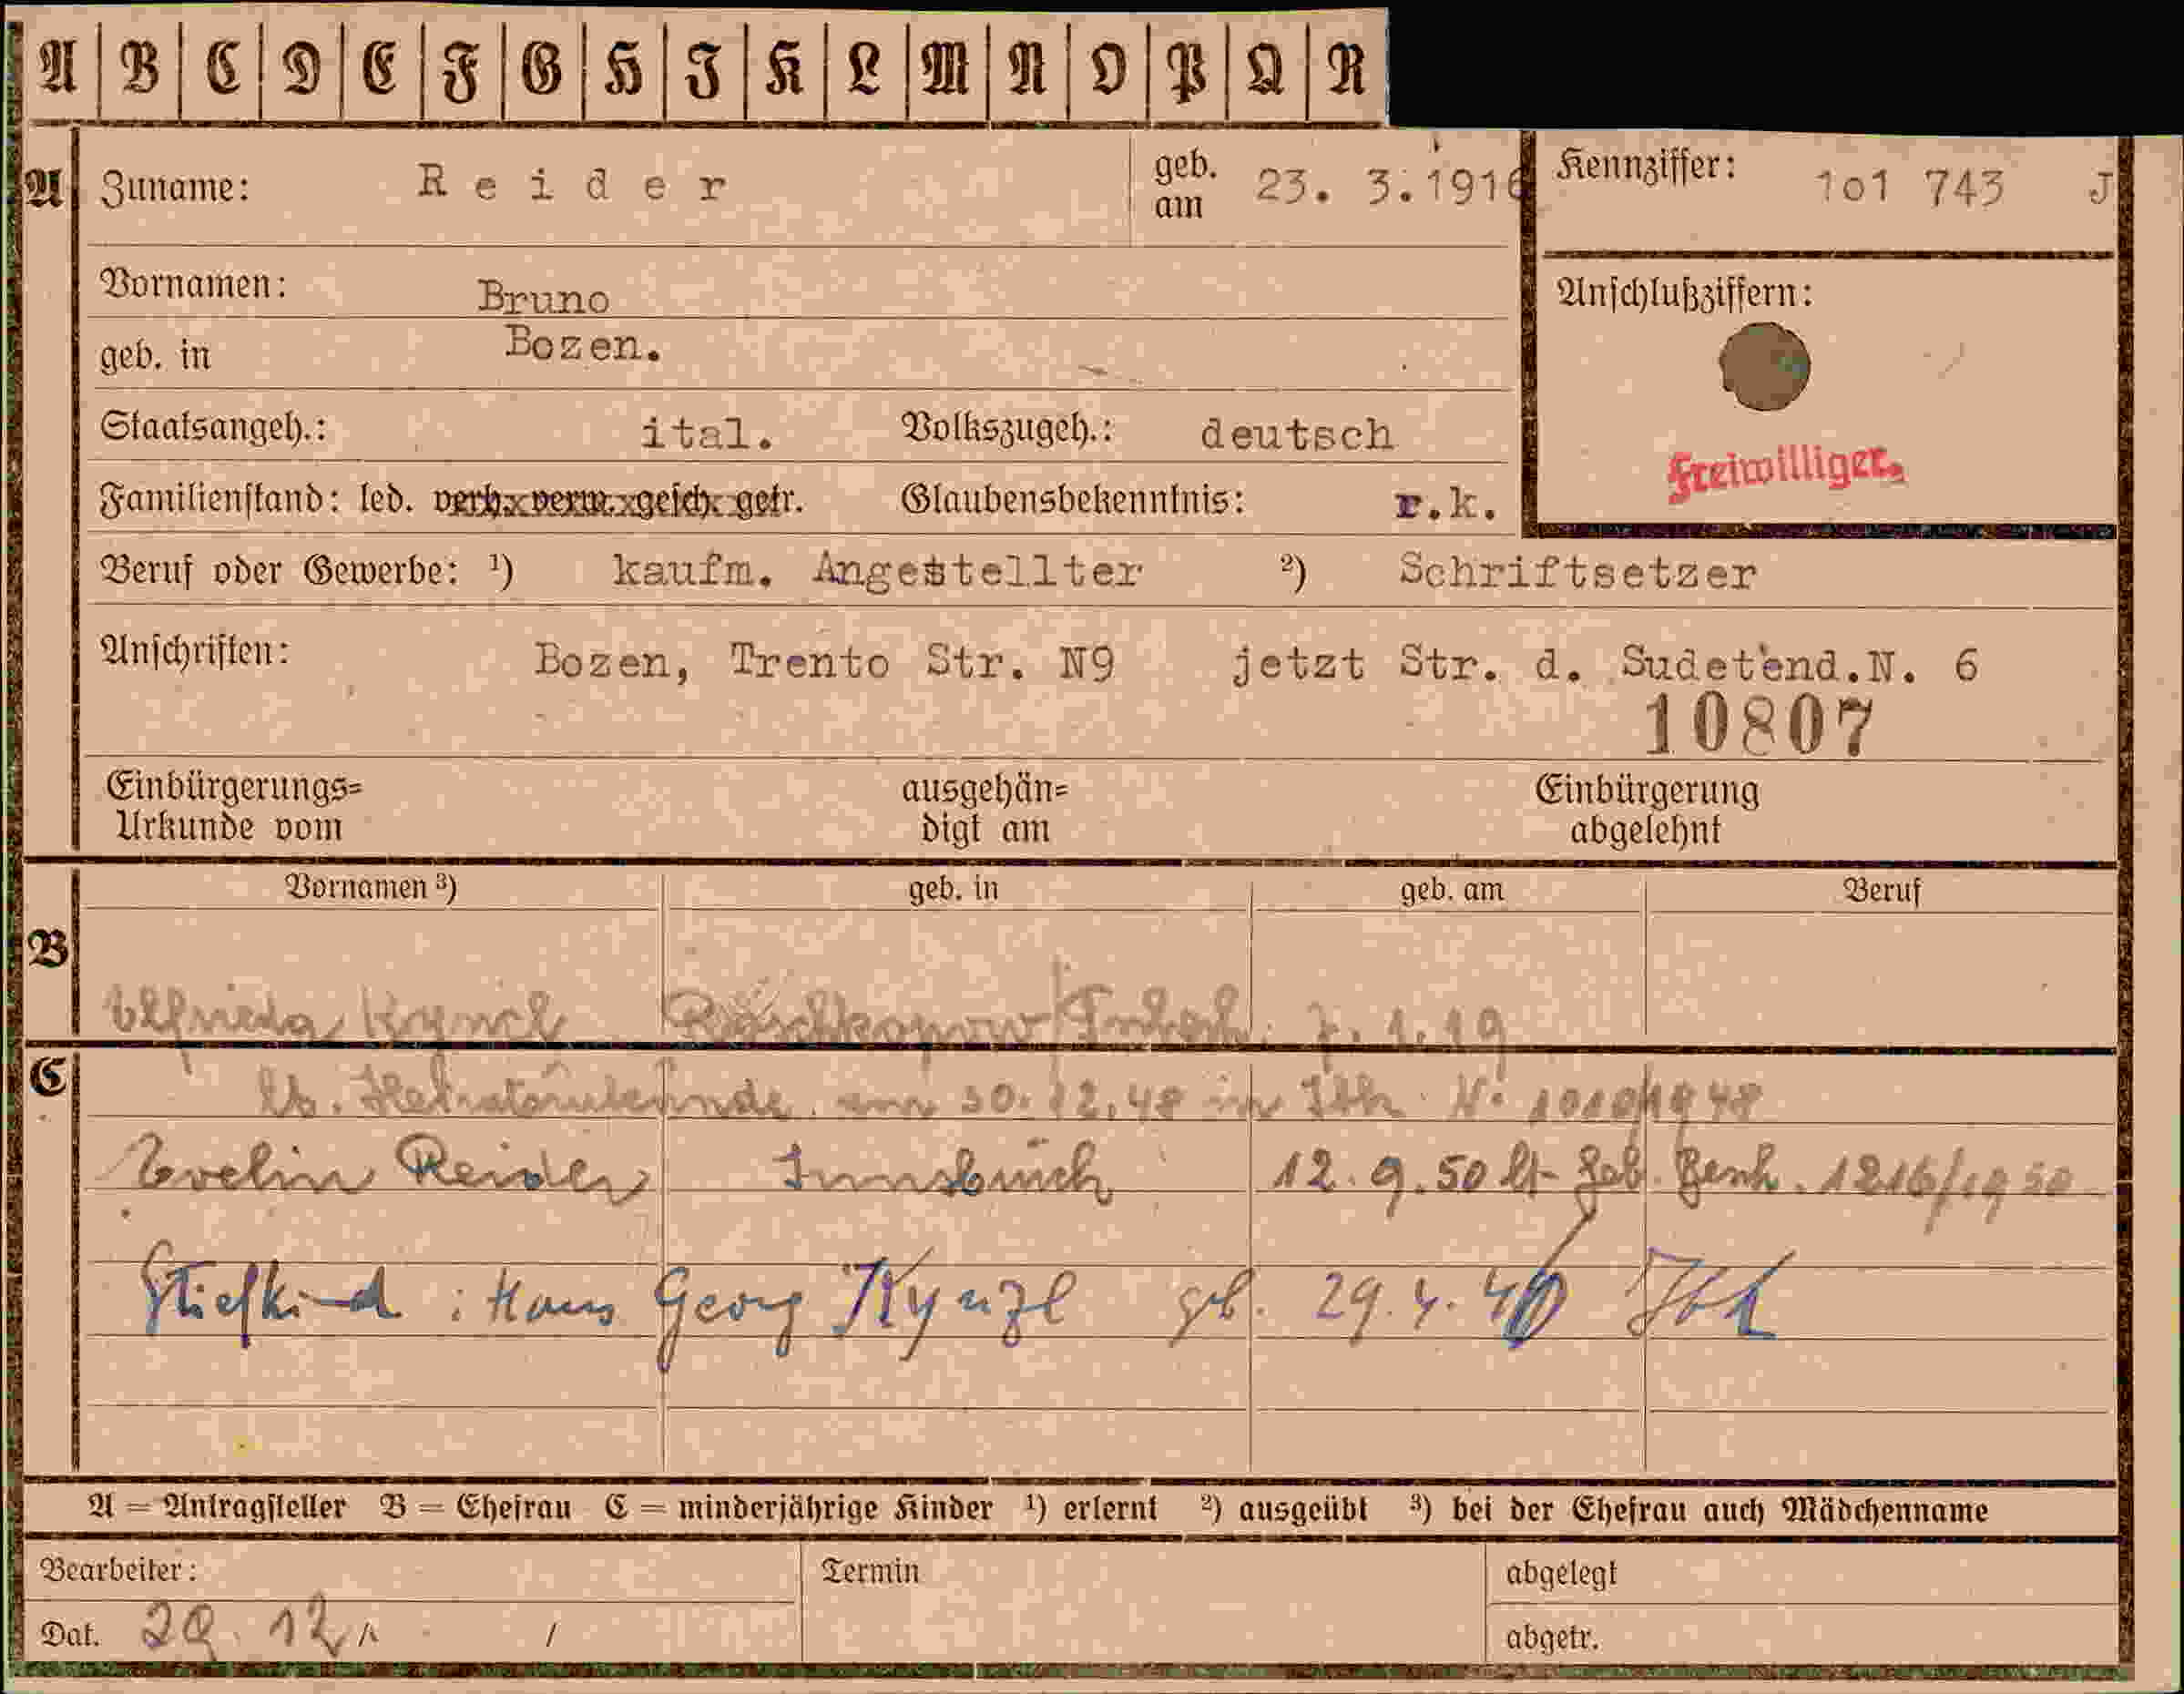 A B C D E F G H I K L M N O P Q R
A Zuname: Reider geb. am 23. 3. 1916 Kennziffer: 101 743 J
Vornamen: Bruno
Anschlußziffern:
geb. in Bozen.
Staatsangeh.: ital. Volkszugeh.: deutsch
Freiwilliger.
Familienstand: led. verh. verw. gesch. getr. Glaubensbekenntnis: r.k.
Beruf oder Gewerbe: ¹) kaufm. Angestellter ²) Schriftsetzer
Anschriften: Bozen, Trento Str. N9 jetzt Str. d. Sudetend.N. 6
10807
Einbürgerungs= ausgehän= Einbürgerung
Urkunde vom digt am abgelehnt
Vornamen ³) geb. in geb. am Beruf
B
Elfrieda 7. 1. 19
C
lt. Heiratsurkunde am 30.12.48 in Ibk N: 1010/1948
Evelin Reider Innsbruck 12.9.50 lt. Geb. Besch. 1216/1950
Stiefkind : Hans Georg Kynzl geb. 29.4.40 Ibk
A = Antragsteller B = Ehefrau C = minderjährige Kinder ¹) erlernt ²) ausgeübt ³) bei der Ehefrau auch Mädchenname
Bearbeiter: Termin abgelegt
Dat. 29. 12. / abgetr.